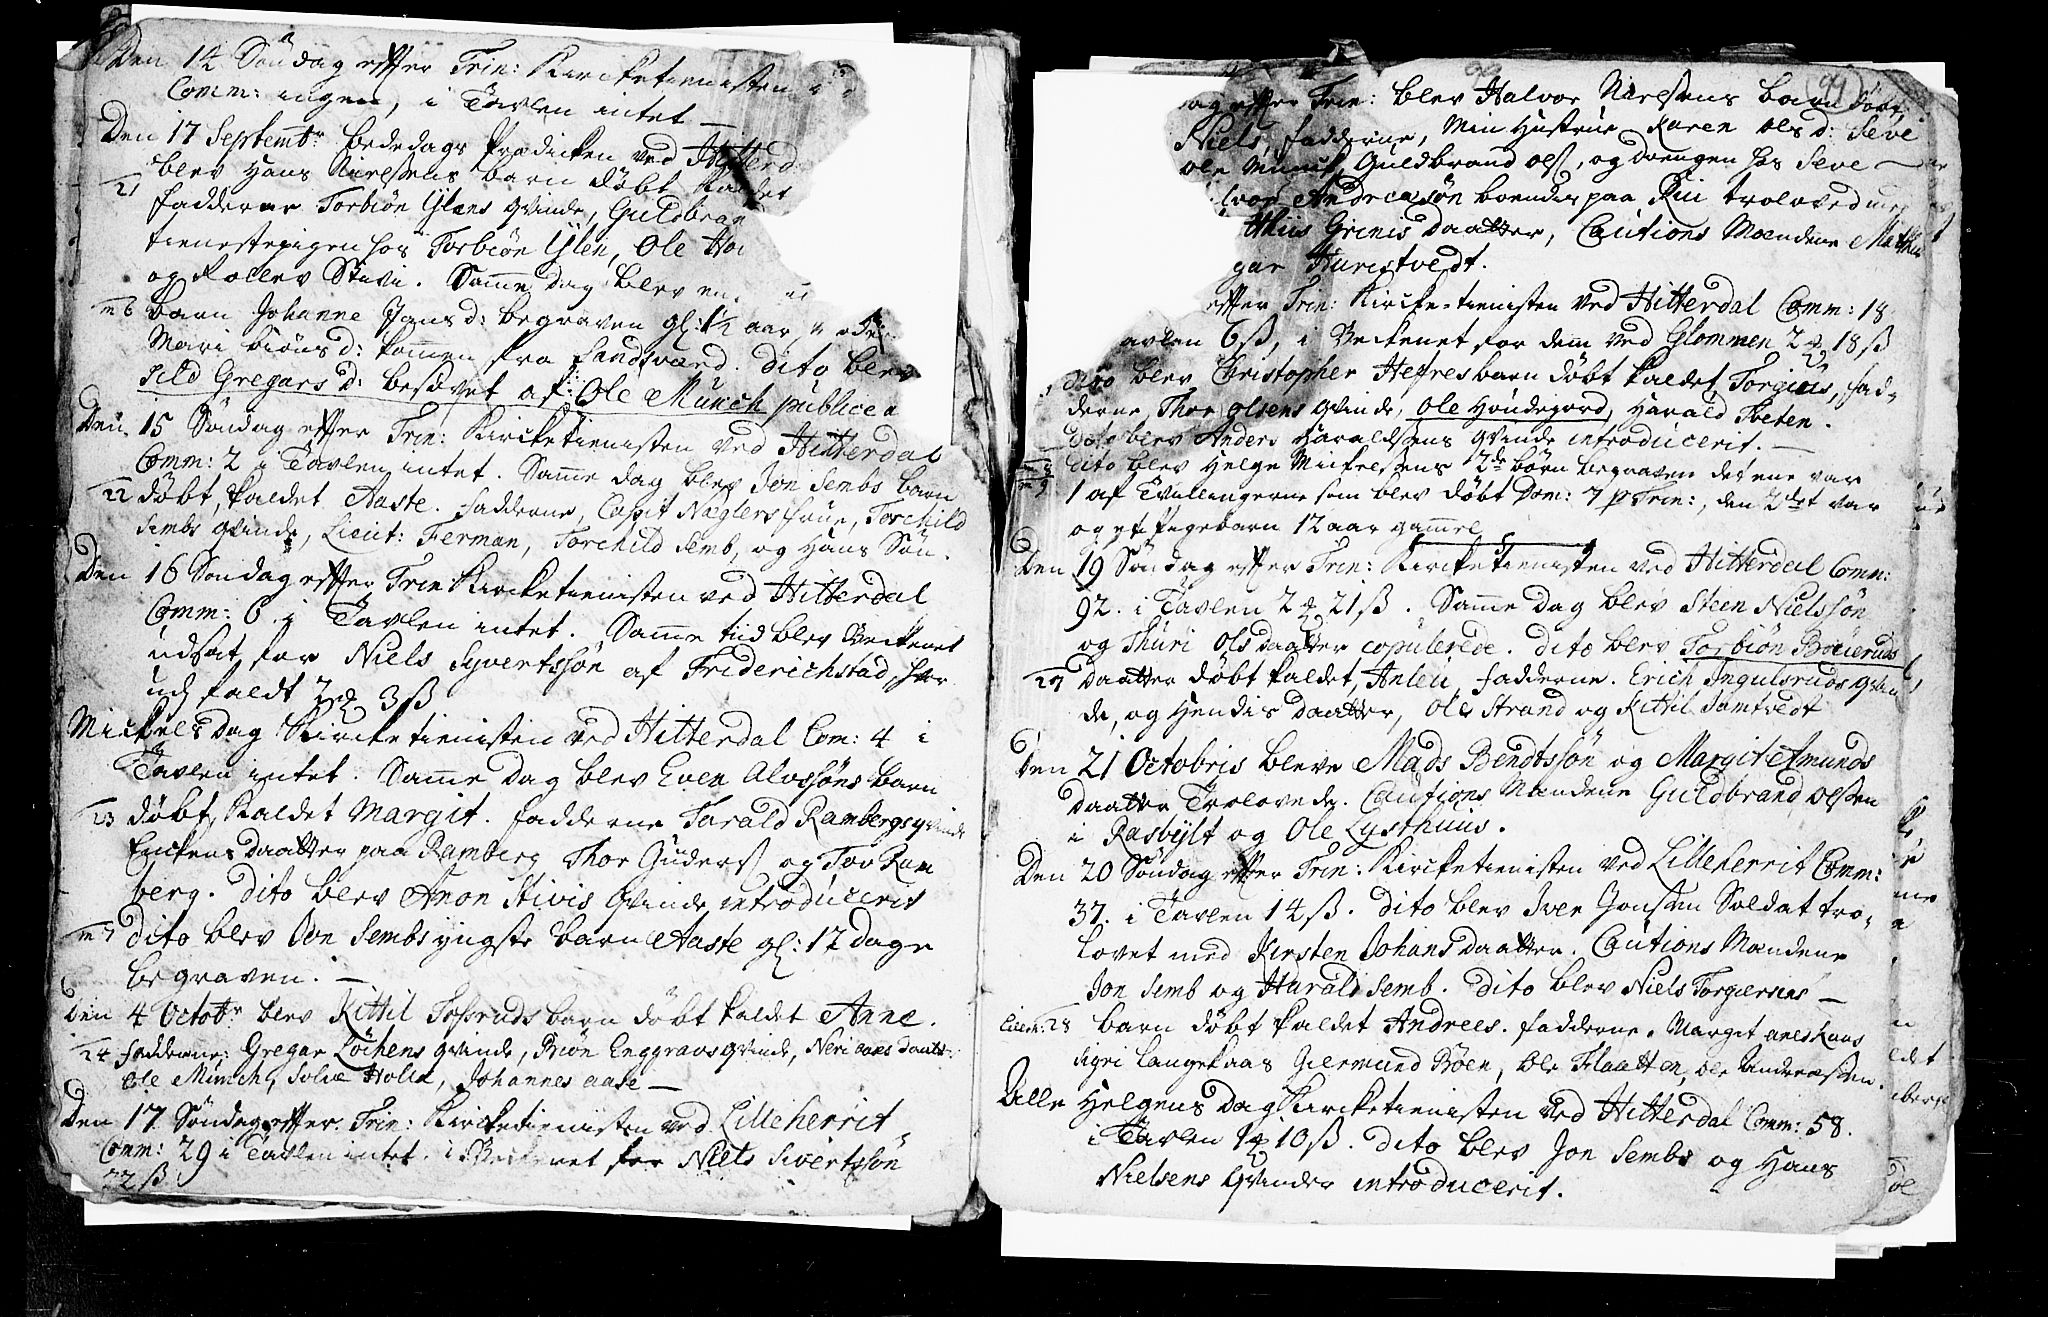 Den 14 Söndag effter Trin: Kircketienisten
Comm: ingen, i Tavlen intet —
Den 17 Septembr bededags Prædicken ved Hitterd
blev Hans Nielsens barn döbt kaldet
21 fadderne Torbiön Ylens qvinde, Guldbran
tienestepigen hos Torbiön Ylen, Ole Ho
og Rollev Stivi. Samme dag blev en
m 6 barn Johanne Jans d: begraven gl: 1½ aar
Mari biöns d: kommen fra Sandsverd. dito blev
sild Gregars d: besovet af Ole Münch publice
Den 15 Söndag effter Trin: Kircketienisten ved Hitterdal
Comm: 2 i Tavlen intet. Samme dag blev Jon Sembs barn
22 döbt, kaldet Aaste. fadderne, Capit Næglers frue, Torchild
Sembs qvinde, Lieut: Ferman, Torchild Semb, og Hans Sön.
Den 16 Söndag effter Trin: Kircketienisten ved Hitterdal
Comm: 6 i Tavlen intet. Samme tiid blev Beckenet
udsat for Niels Syvertssön af Friderichstad, hvor
udj faldt 2 3 ß
Mickels Dag Kircketienisten ved Hitterdal Com: 4 i
Tavlen intet. Samme Dag blev Even Alvssöns barn
23 döbt, kaldet Margit. fadderne Tarald Rambergs qvinde
Enckens daatter paa Ramberg Thor Guders og Tov Ram
berg. dito blev Anon Stivis qvinde introducerit
m 7 dito blev Jon Sembs yngste barn Aaste gl: 12 dage
begraven. —
Den 4 Octobr blev Kittil Tofsruds barn döbt kaldet Anne.
24 fadderne: Gregar Löchens qvinde, Briön Enggravs qvinde, Neri daatt:
Ole Münch, Solve Holla, Johannes aase —
Den 17 Söndag effter Trin: Kircketienisten ved Lilleherrit
Comm: 29 i Tavlen intet. i Beckenet for Niels Sivertssön
22 ß
91
ag effter Trin: blev Halvor Nielsens barn döbt
Niels, fadderne, Min Hustrue Karen Ols d: Seve
ole Munch, Guldbrand ols, og drengen hos Seve —
lvor Andreæsön boendes paa Rui troloved med
thiis Grinis daatter, Cautions Mændene Mathis
gar Huristvedt.
effter Trin: Kircketienisten ved Hitterdal Comm: 18
avlen 6 ß, i Beckenet for dem ved Glommen 2 18 ß
dito blev Christopher Hefres barn döbt kaldet Torgius, fad-
derne Thor olsens qvinde, ole Houdegord, Harald Tveten.
dito blev Anders Haraldsens qvinde introducerit. —
m 9 dito blev Helge Mickelsens 2de börn begraven det ene var
1 af Tvillingerne som blev döbt Dom: 7 p Trin:, den 2det var
og et pigebarn 12 aar gammel
Den 19 Söndag effter Trin: Kircketienisten ved Hitterdal Comm:
92. i Tavlen 2 21 ß. Samme Dag blev Steen Nielssön
og Thuri Olsdaatter copulerede. dito blev Torbiön Böeieruds
27 daatter döbt kaldet, Anlei, fadderne. Erich Ingulsruds qvin
de, og Hendis daatter, Ole Strand og Kittil Samtvedt
Den 21 Octobris bleve Mads Bendtssön og Margit Amunds
daatter Trolovede. Cautions Mændene Guldbrand olssen
i Rasbylt og Ole Lysthuus.
Den 20 Söndag effter Trin: Kircketienisten ved Lilleherrit Comm:
37. i Tavlen 14 ß. dito blev Iver Jonssen Soldat tro-
lovet med Kirsten Johansdaatter. Cautions Mændene
Jon Semb og Harald Semb. dito blev Niels Torgiersens —
28 barn döbt kaldet Andrees. fadderne. Margit aaleskaas
Sigri Langekaas Giermund Böen, ole Flaatten, ole Andersssen.
Alle Helgens Dag Kircketienisten ved Hitterdal Comm: 58.
i Tavlen 1 10 ß. dito blev Jon Sembs og Hans
Nielsens qvinder introducerit.